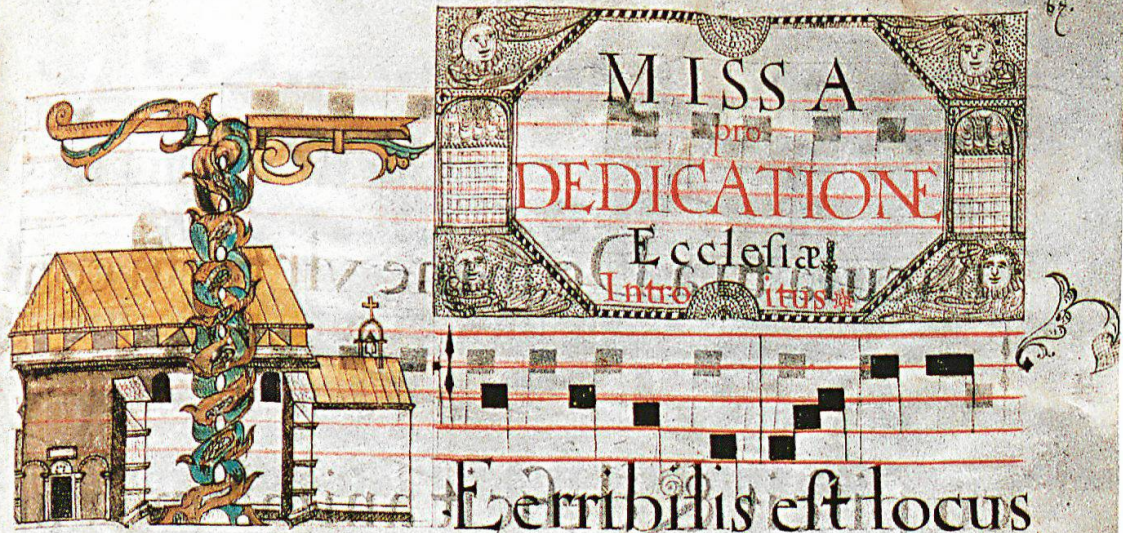 67.
MISSA
pro
DEDICATIONE
Eccleſiæ
Introitus
TEerribilis eſt locus